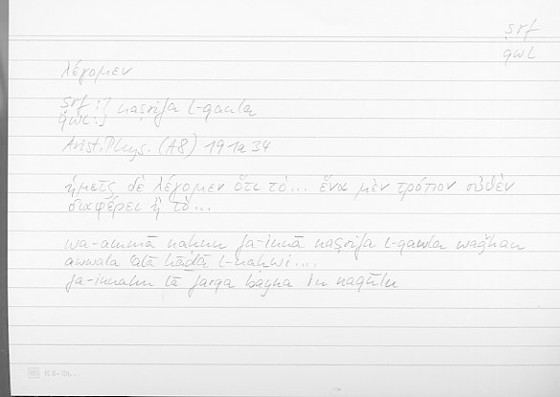 ṣrf
qwl
λέγομεν
ṣrf :] naṣrifa l-qawla
qwl :]
Arist. Phys. (A8) 191a34
ἡμεῖς δὲ λέγομεν ὅτι τὸ... ἕνα μὲν τρόπον οὐθὲν
διαφέρει ἢ τὸ...
wa-ammā naḥnu fa-innā naṣrifu l-qawla waǧhan
awwala ʿalā hāḏā l-naḥwi....
fa-innahu lā farqa bayna an naqūla